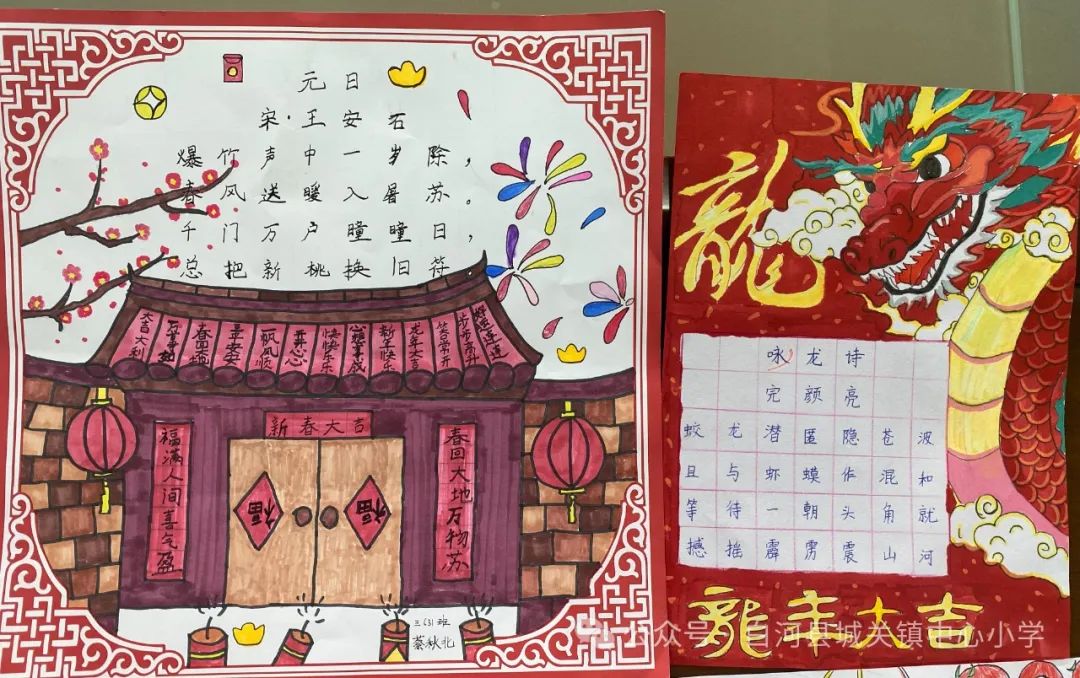 元日
宋·王安石
爆竹声中一岁除，
春风送暖入暑苏。
千门万户瞳瞳日，
总把新桃换旧符
大吉大利
万事如意
平平安安
一帆风顺
开开心心
快快乐乐
心想事成
新年快乐
龙年大吉
笑口常开
步步高升
好运连连
新春大吉
福满人间喜气盈
春回大地万物苏
福
福
蔡秋北
龍
咏龙诗
完颜亮
蛟龙潜匿隐苍波
且与虾蟆作混和
等待一朝头角就
撼摇霹雳震山河
龍年大吉
公众号·白河县城关镇中心小学